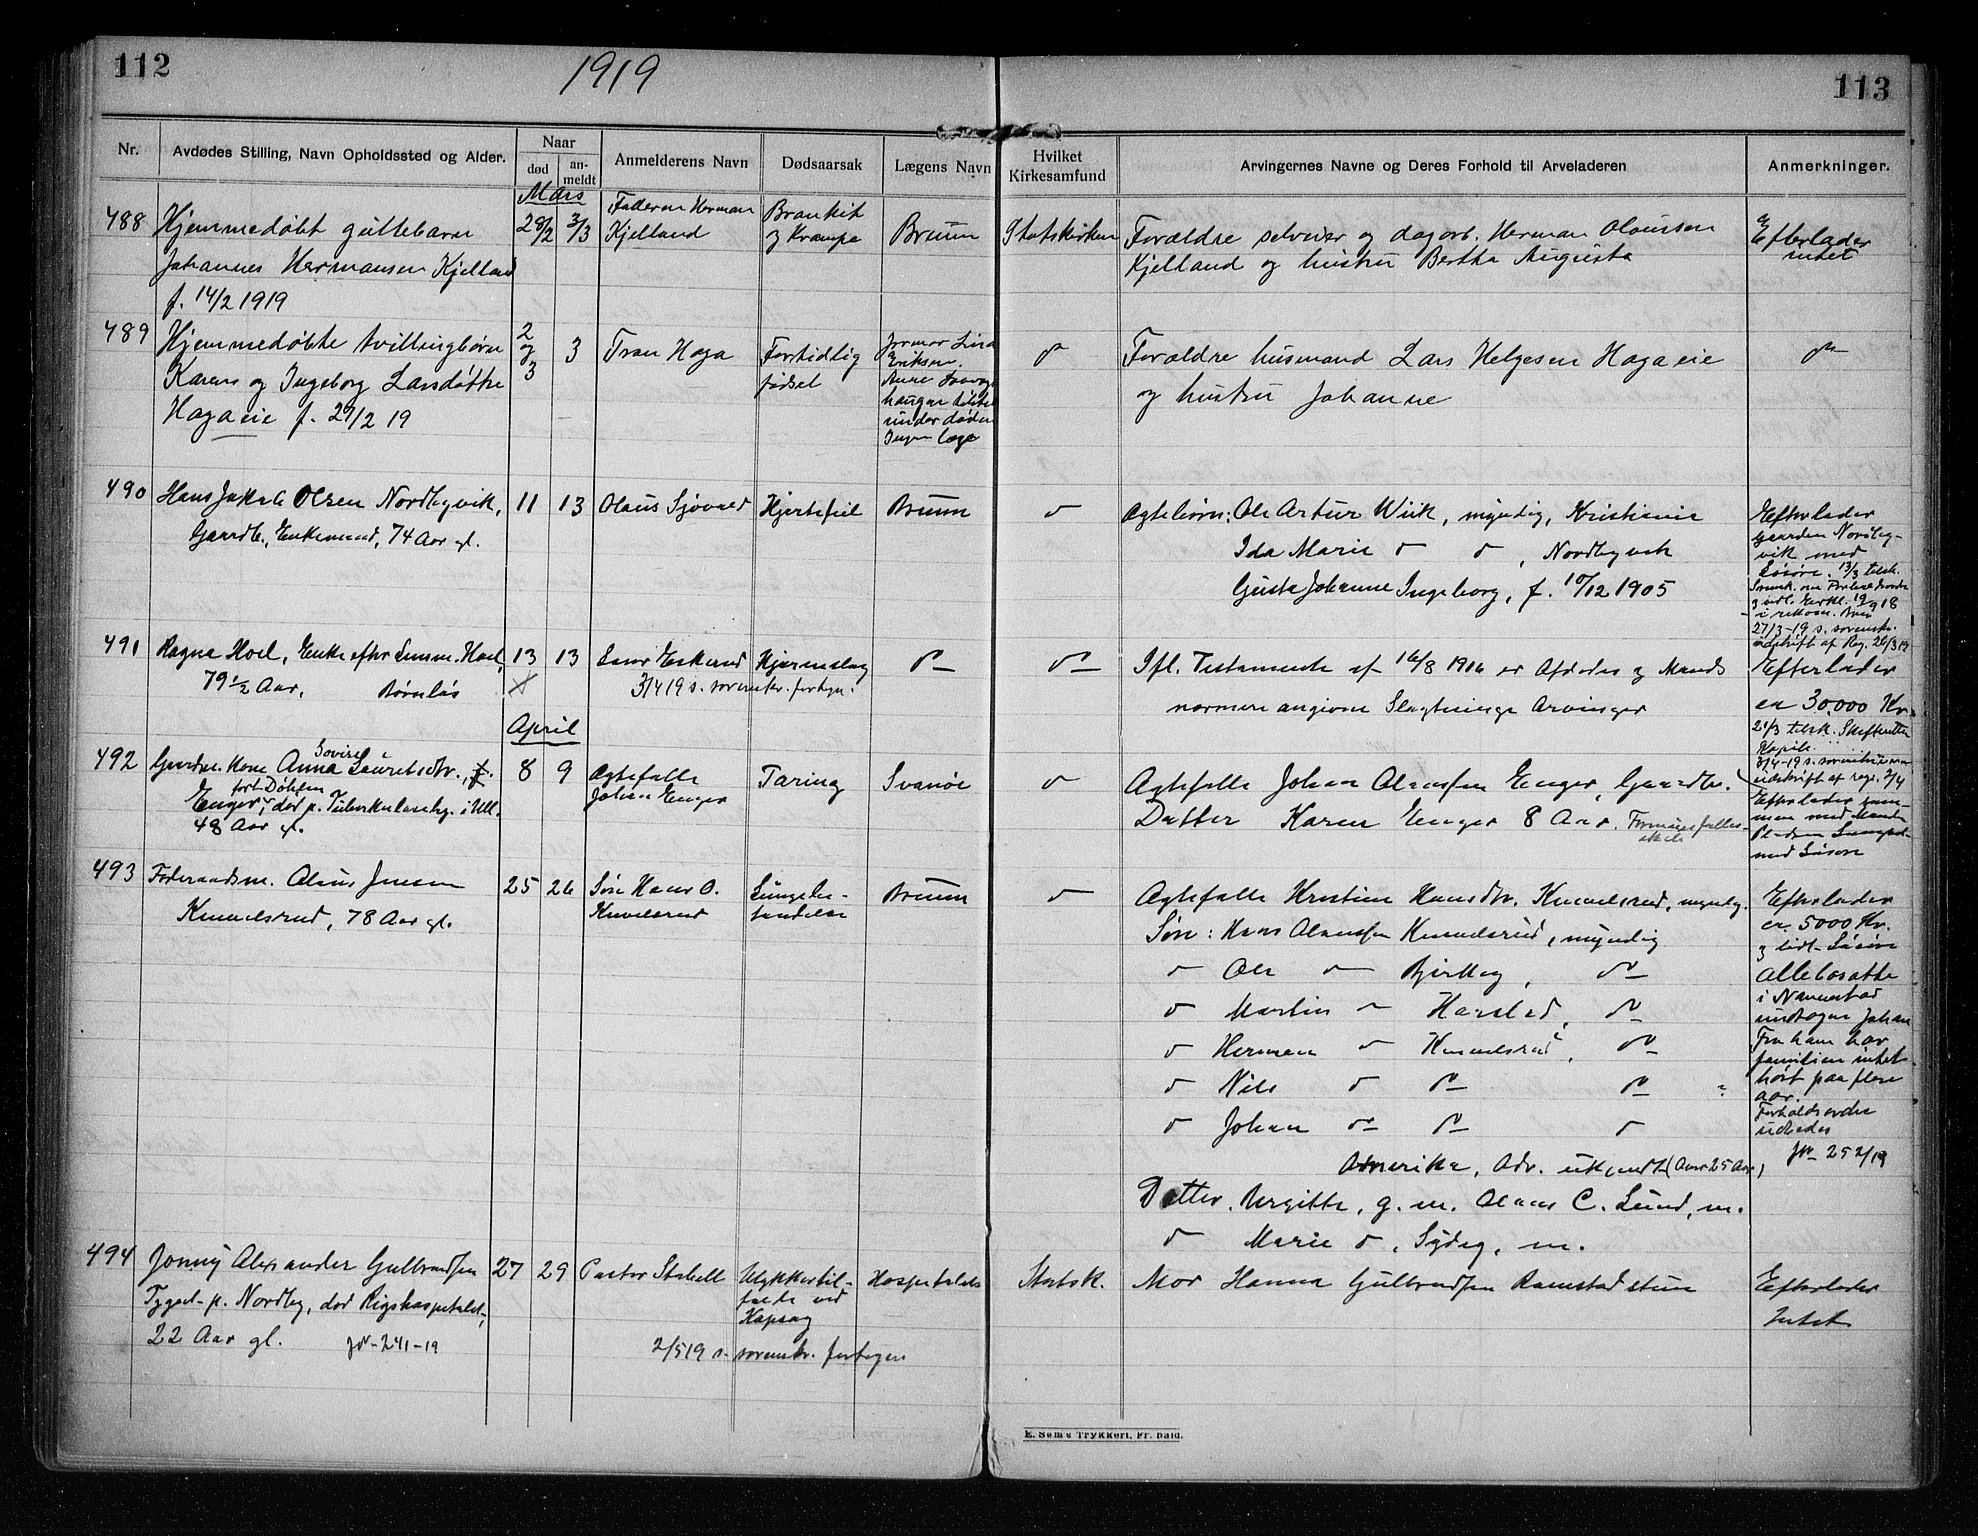 112
1919
113
Nr.
Avdødes Stilling, Navn Opholdssted og Alder.
Naar
død
an-
meldt
Anmelderens Navn
Dødsaarsak
Lægens Navn
Hvilket
Kirkesamfund
Arvingernes Navne og Deres Forhold til Arveladeren
Anmerkninger.
Mars
488
Hjemmedøbt guttebarn
Johannes Hermansen Kjelland
f. 14/2 1919
28/2
3/3
Faderen Herman
Kjelland
Bronkit
og Krampe
Bruun
Statskirken
Forældre selveier og dagarb. Herman Olaussen
Kjelland og hustru Bertha Augusta
Efterlader
intet
489
Hjemmedøbte tvillingbørn
Karen og Ingeborg Larsdøtre
Hagaeie f. 27/2 19
2
og
3
3
Tron Haga
Fortidlig
fødsel
Jormor Lina
Eriksen.
under døden
Ingen læge
Forældre husmand Lars Helgesen Hagaeie
og hustru Johanne
490
Hans Jakob Olsen Nordbyvik,
Gaardb., Enkemand, 74 Aar gl.
11
13
Olaus Sjøvold
Hjertefeil
Bruun
Ægtebørn: Ole Artur Wiik, myndig, Kristiania
Ida Marie , Nordbyvik
Gusta Johanne Ingeborg, f. 10/12 1905
Efterlader
Gaarden Nordby-
vik med
Løsøre. 13/3 telsk.
27/3-19 s. sorenskr.
udskrift af Reg. 26/3 19
491
Ragna Hoel, Enke efter Hoel,
79 1/2 Aar, Barnløs
13
13
Hjerneslag
3/4 19 s. sorenskr. fortegn.
Ifl. Testamente af 16/8 1916 er Afdødes og Mands
nærmere angivne Slægtninge Arvinger
Efterlader
ca 30,000 Kr.
21/3 telsk. Skifteretten
3/4-19 s. sorenskriveren
udskrift af reg. 2/4
April
492
Gaardm. Kone Anna Lovise Lauretsdtr.,
født Dølsen
Enger, død p. Tuberkulosehj. i Ull.
48 Aar gl.
8
9
Ægtefælle
Johan Enger
Tæring
Svanøe
Ægtefælle Johan Olaussen Enger, Gaardbr.
Datter Karen Enger 8 Aar.
Efterlader sam-
men med Mand
Pladsen
med Løsøre
493
Føderaadsm. Olaus Jensen
Knuvelsrud, 78 Aar gl.
25
26
Søn Hans O.
Knuvelsrud
Lungebe-
tændelse
Bruun
Ægtefælle Kristine Hansdtr. Knuvelsrud, myndig.
Søn: Hans Olaussen Knuvelsrud, myndig
Ole Bjerkeg,
Martin Harstad,
Herman Knuvelsrud,
Nils
Johan
Amerika, Adr. ukjendt (Over 25 Aar)
Datter, Birgitte, g. m. Olaus C. Lund, m.
Marie , Sydeg, m.
Efterlader
ca. 5000 Kr.
og lidt Løsøre
Alle bosatte
i Nannestad
undtagen Johan
Fra ham har
familien intet
hørt paa flere
aar.
Forholdsordre
udbedes
Jr 252/19
494
Jonny Alexander Gulbrandsen
Tygsel p. Nordby, død Rigshospitalet,
22 Aar gl. Jr-241-19
27
29
Pastor Stabell
Ulykkestil-
fælde ved
Kapsag
Hospitalets
2/5 19 s. sorenskr. fortegn
Statsk.
Mor Hanna Gulbrandsen Ramstadstuen
Efterlader
Intet
E. Sem's Trykkeri, Fr. hald.